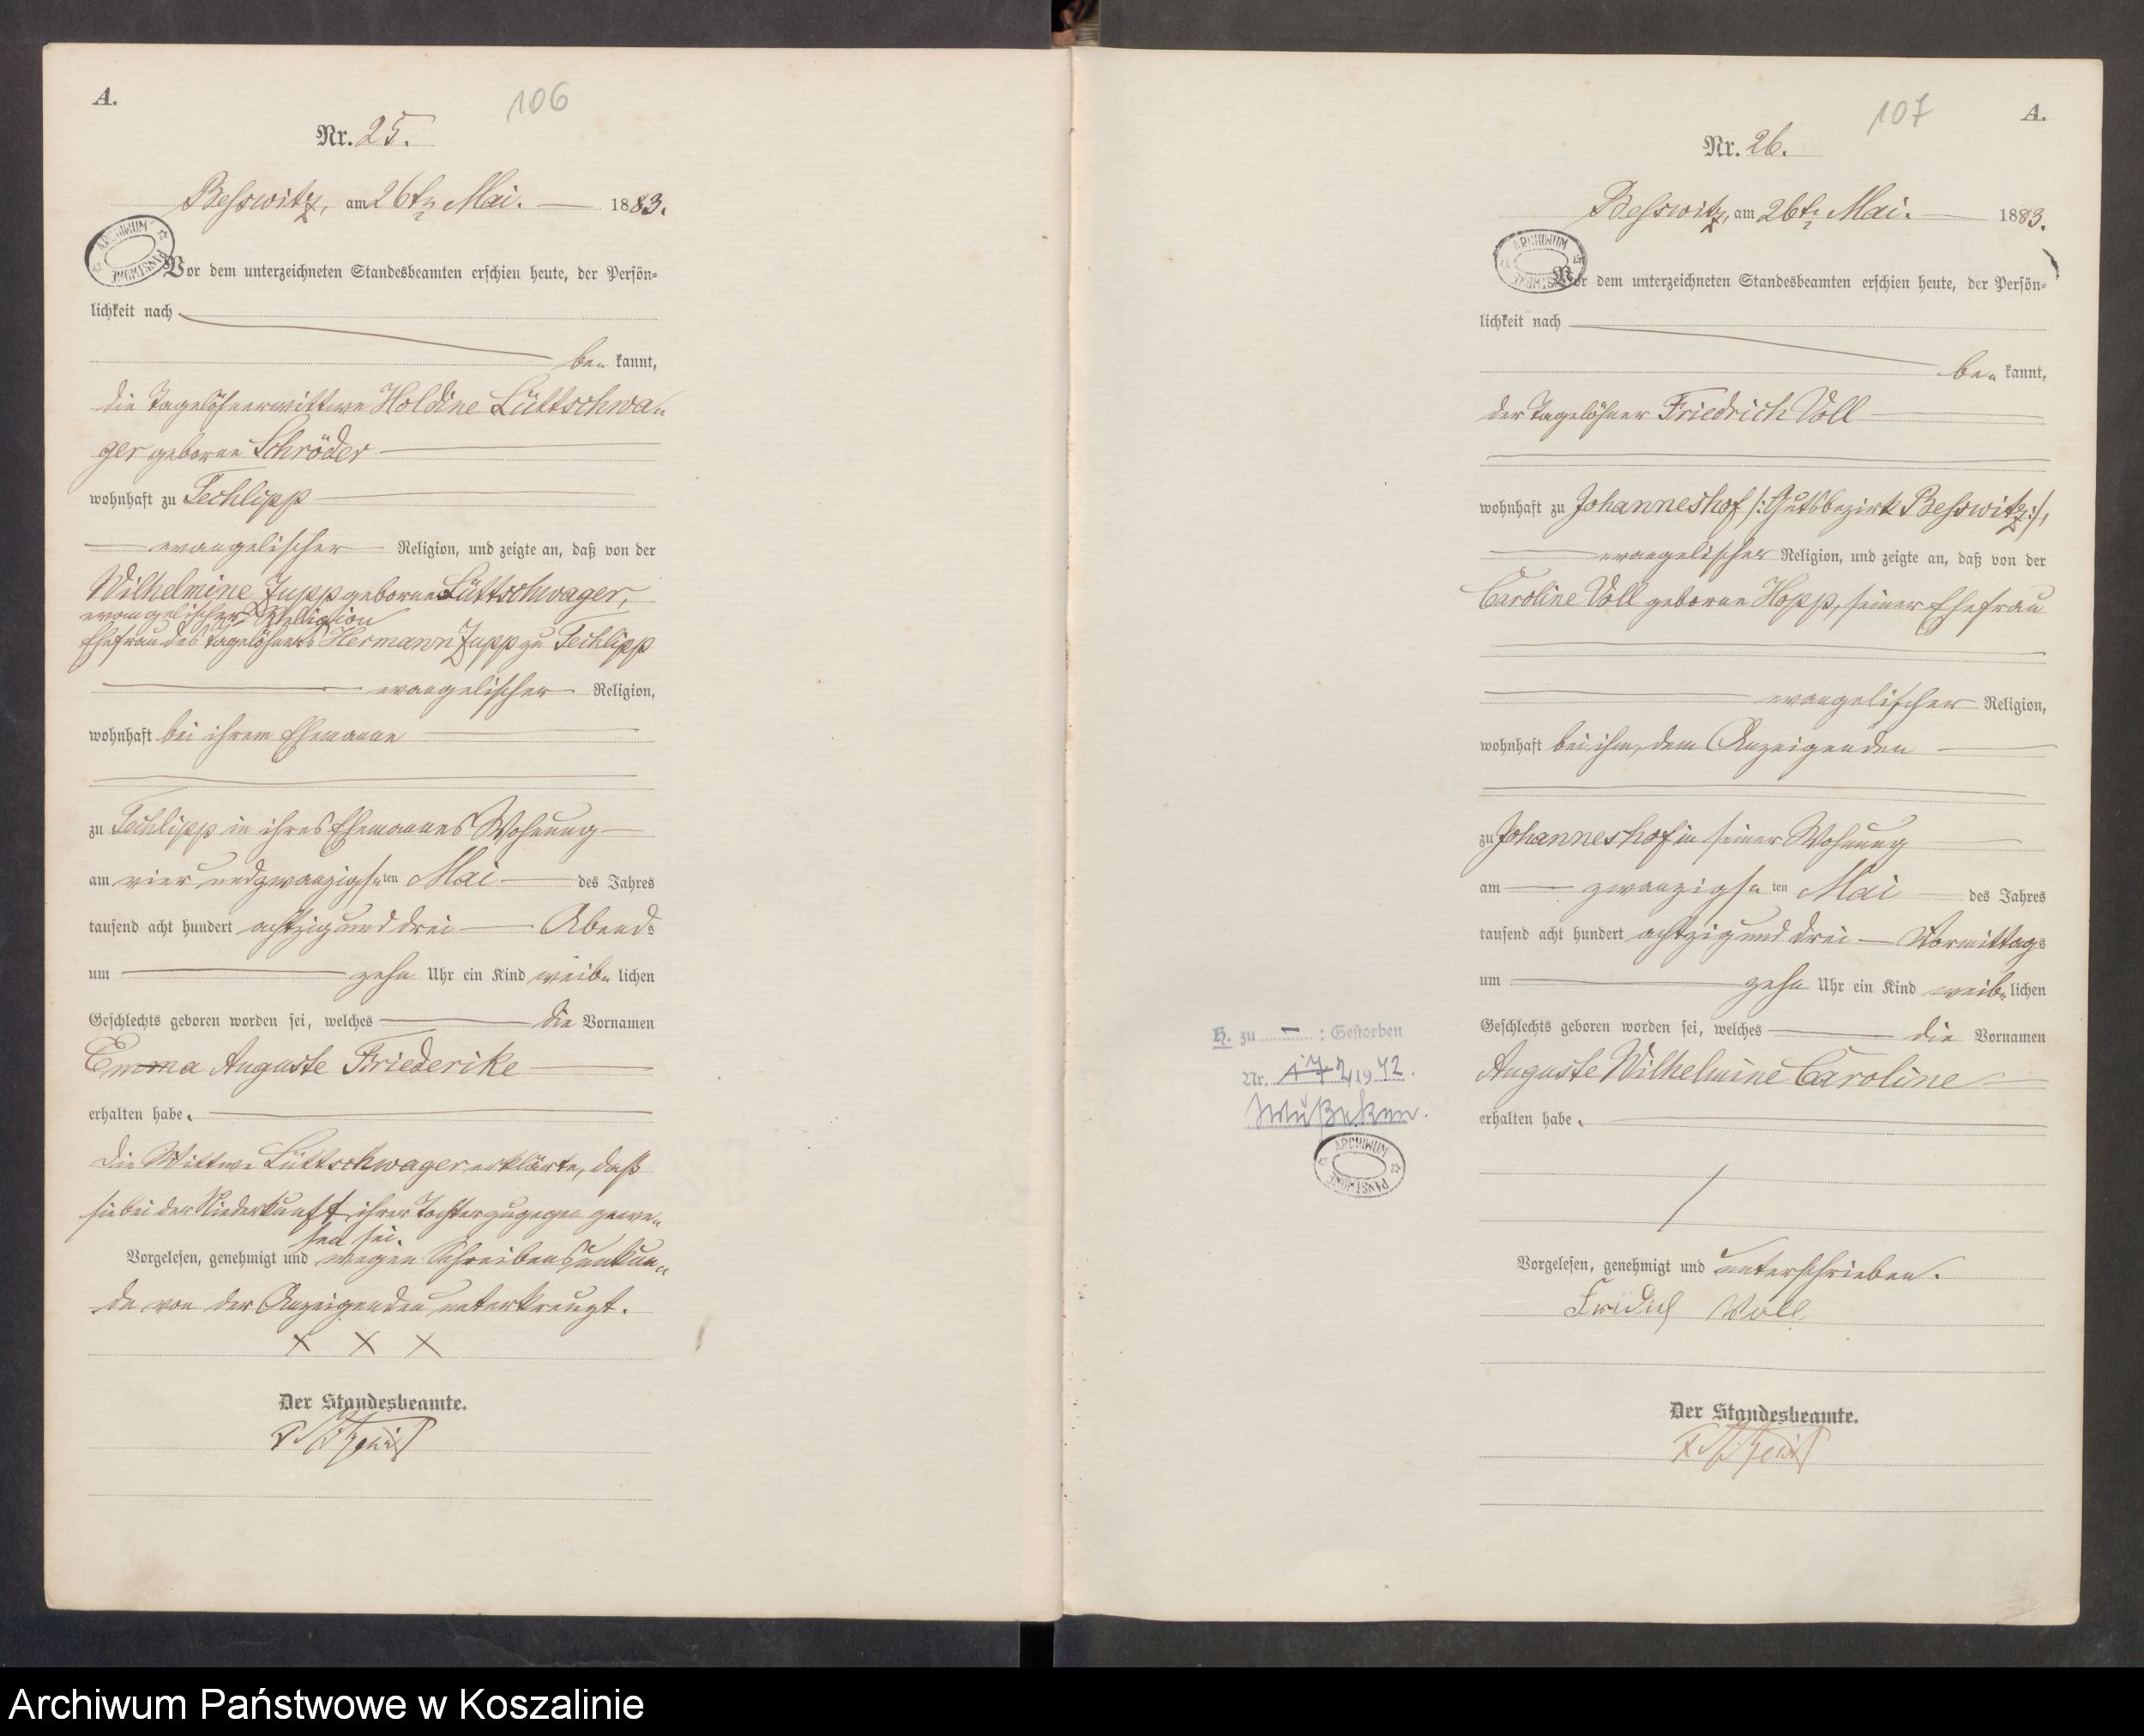 A.
106
Nr. 25.
Beßwitz, am 26ten Mai. 1883.
ARCHIWUM PAŃSTWOWE
Vor dem unterzeichneten Standesbeamten erschien heute, der Persön-
lichkeit nach
be- kannt,
die Tagelöhnerwittwe Holdine Lüttschwa-
ger geborne Schröder
wohnhaft zu Techlipp
evangelischer Religion, und zeigte an, daß von der
Wilhelmine Zupp geborne Lüttschwager,
evangelischer Religion
Ehefrau des Tagelöhners Hermann Zupp zu Techlipp
evangelischer Religion,
wohnhaft bei ihrem Ehemanne
zu Techlipp in ihres Ehemannes Wohnung
am vier und zwanzigsten Mai des Jahres
tausend acht hundert achtzig und drei Abends
um zehn Uhr ein Kind weib- lichen
Geschlechts geboren worden sei, welches die Vornamen
Emma Auguste Friederike
erhalten habe.
Die Wittwe Lüttschwager erklärte, daß
sie bei der Niederkunft ihrer Tochter zugegen gewe-
sen sei.
Vorgelesen, genehmigt und wegen Schreibensunkun-
de von der Anzeigenden unterkreuzt.
x x x
Der Standesbeamte.
107
A.
Nr. 26.
Beßwitz, am 26ten Mai. 1883.
ARCHIWUM PAŃSTWOWE
Vor dem unterzeichneten Standesbeamten erschien heute, der Persön-
lichkeit nach
be- kannt,
der Tagelöhner Friedrich Voll
wohnhaft zu Johanneshof /: Gutsbezirk Beßwitz :/,
evangelischer Religion, und zeigte an, daß von der
Caroline Voll geborne Hopp, seiner Ehefrau
evangelischer Religion,
wohnhaft bei ihm, dem Anzeigenden
zu Johanneshof in seiner Wohnung
am zwanzigsten Mai des Jahres
tausend acht hundert achtzig und drei Vormittags
um zehn Uhr ein Kind weib- lichen
Geschlechts geboren worden sei, welches die Vornamen
Auguste Wilhelmine Caroline
erhalten habe.
Vorgelesen, genehmigt und unterschrieben.
Fridich Voll
Der Standesbeamte.
H. zu — : Gestorben
Nr. 1942.
ARCHIWUM PAŃSTWOWE
Archiwum Państwowe w Koszalinie